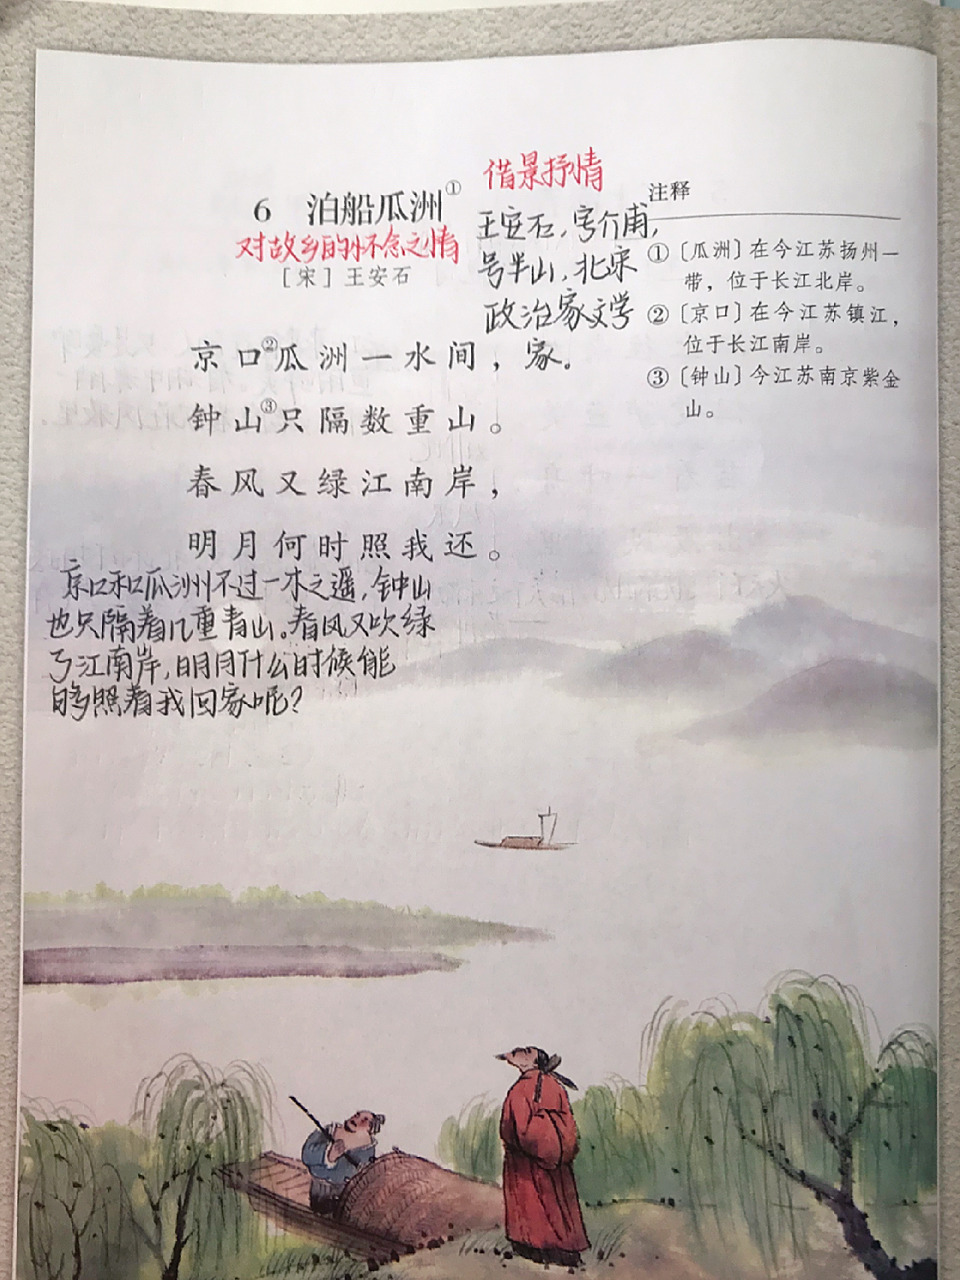 借景抒情
6 泊船瓜洲①
对故乡的怀念之情
[宋] 王安石
王安石,字介甫,
号半山,北宋
政治家文学
家。
京口②瓜洲一水间，
钟山③只隔数重山。
春风又绿江南岸，
明月何时照我还。
京口和瓜洲不过一水之遥,钟山
也只隔着几重青山。春风又吹绿
了江南岸,明月什么时候能
够照着我回家呢?
注释
①〔瓜洲〕在今江苏扬州一
带，位于长江北岸。
②〔京口〕在今江苏镇江，
位于长江南岸。
③〔钟山〕今江苏南京紫金
山。